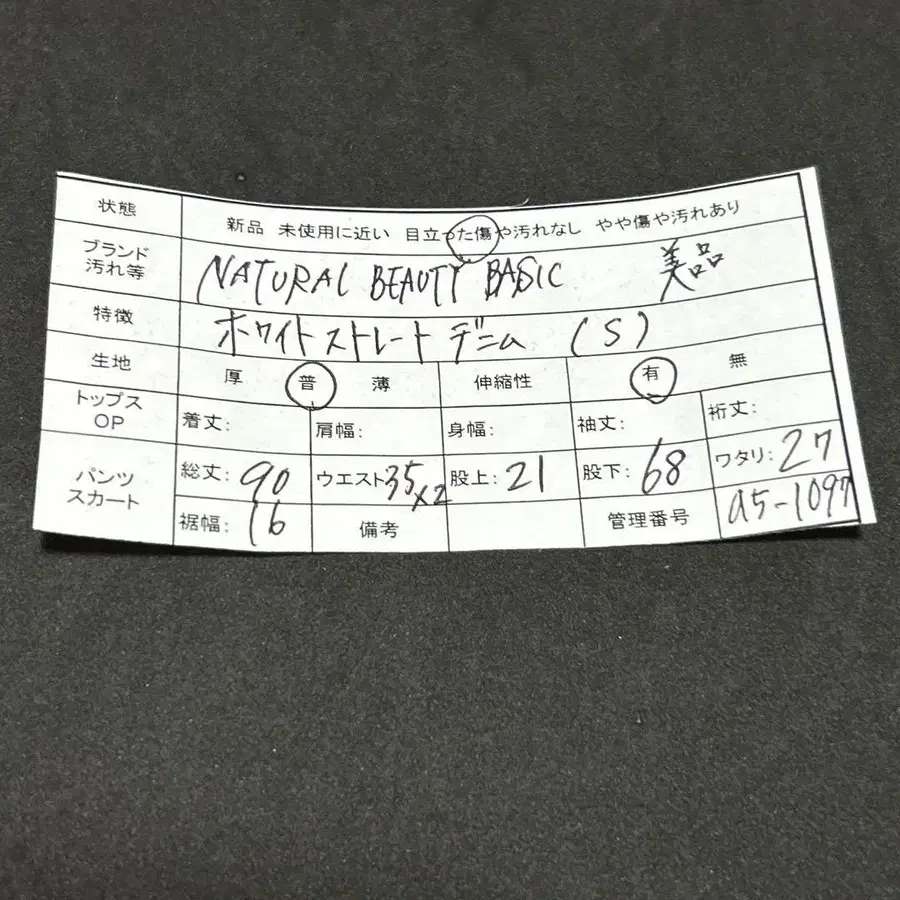 状態 新品 未使用に近い 目立った傷や汚れなし やや傷や汚れあり
ブランド 汚れ等 NATURAL BEAUTY BASIC 美品
特徴 ホワイトストレートデニム (S)
生地 厚 普 薄 伸縮性 有 無
トップス OP 着丈: 肩幅: 身幅: 袖丈: 裄丈:
パンツ スカート 総丈: 90 ウエスト 35×2 股上: 21 股下: 68 ワタリ: 27
裾幅: 16 備考 管理番号 a5-1097